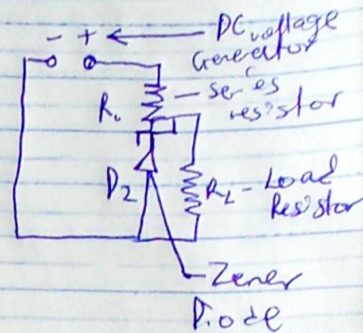 - + ← DC voltage
Generator
R. - series
resistor
DZ RL - Load
Resistor
Zener
Diode